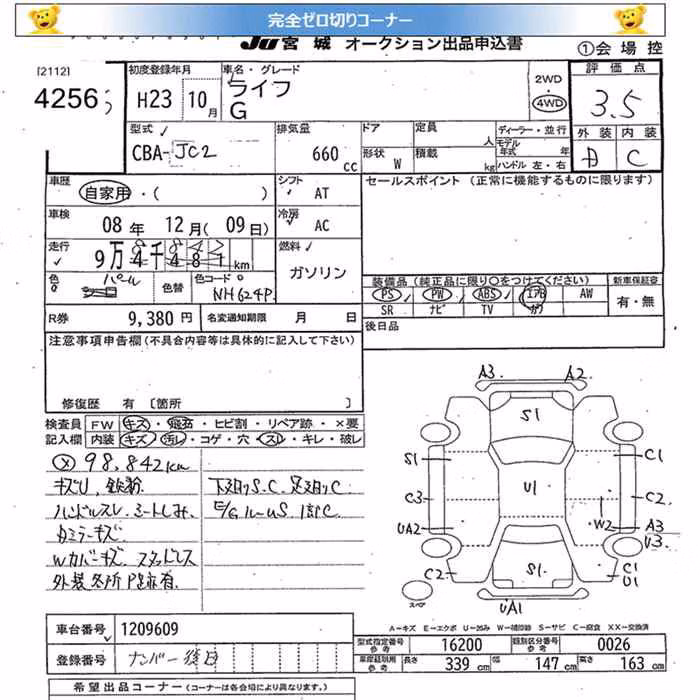 完全ゼロ切りコーナー
JU宮城 オークション出品申込書
①会場控
[2112]
4256
初度登録年月
H23 10月
車名・グレード
ライフ
G
2WD
4WD
評価点
3.5
型式
CBA-JC2
排気量
660cc
ドア
形状 W
定員 人
積載 kg
ディーラー・並行
モデル年式 年
ハンドル 左・右
外装 内装
D C
車歴
自家用・( )
シフト
AT
セールスポイント (正常に機能するものに限ります)
車検
08年 12月(09日)
冷房
AC
走行
9万8千842km
4 481
燃料
ガソリン
色
パール
色替
色コード
NH624P
装備品(純正品に限り○をつけてください)
新車保証書
PS PW ABS エアB AW
SR ナビ TV カワ
有・無
R券 9,380円
名変通知期限 月 日
後日品
注意事項申告欄(不具合内容等は具体的に記入して下さい)
修復歴 有 [箇所 ]
検査員記入欄
FW キズ・飛石・ヒビ割・リペア跡・×要
内装 キズ・汚レ・コゲ・穴・スレ・キレ・破レ
ⓧ98,842km
キズU、鉄粉
下廻りS.C、足廻りC
ハンドルスレ、シートしみ、
E/GルームS 1部C
カミラーキズ
Wカバーキズ スタッドレス
外装各所P跡有
A3 A2
S1
S1 C1
C3 U1 C2
UA2 W2 A3
U3
C2 S1 C1
U1
UA1
スペア
A-キズ E-エクボ U-凹み W-補修跡 S-サビ C-腐食 XX-交換済
車台番号 1209609
型式指定番号 参考 16200
類別区分番号 参考 0026
登録番号 ナンバー後日
車車検証用 参考
長さ 339cm 幅 147cm 高さ 163cm
希望出品コーナー(コーナーは各会場により異なります。)